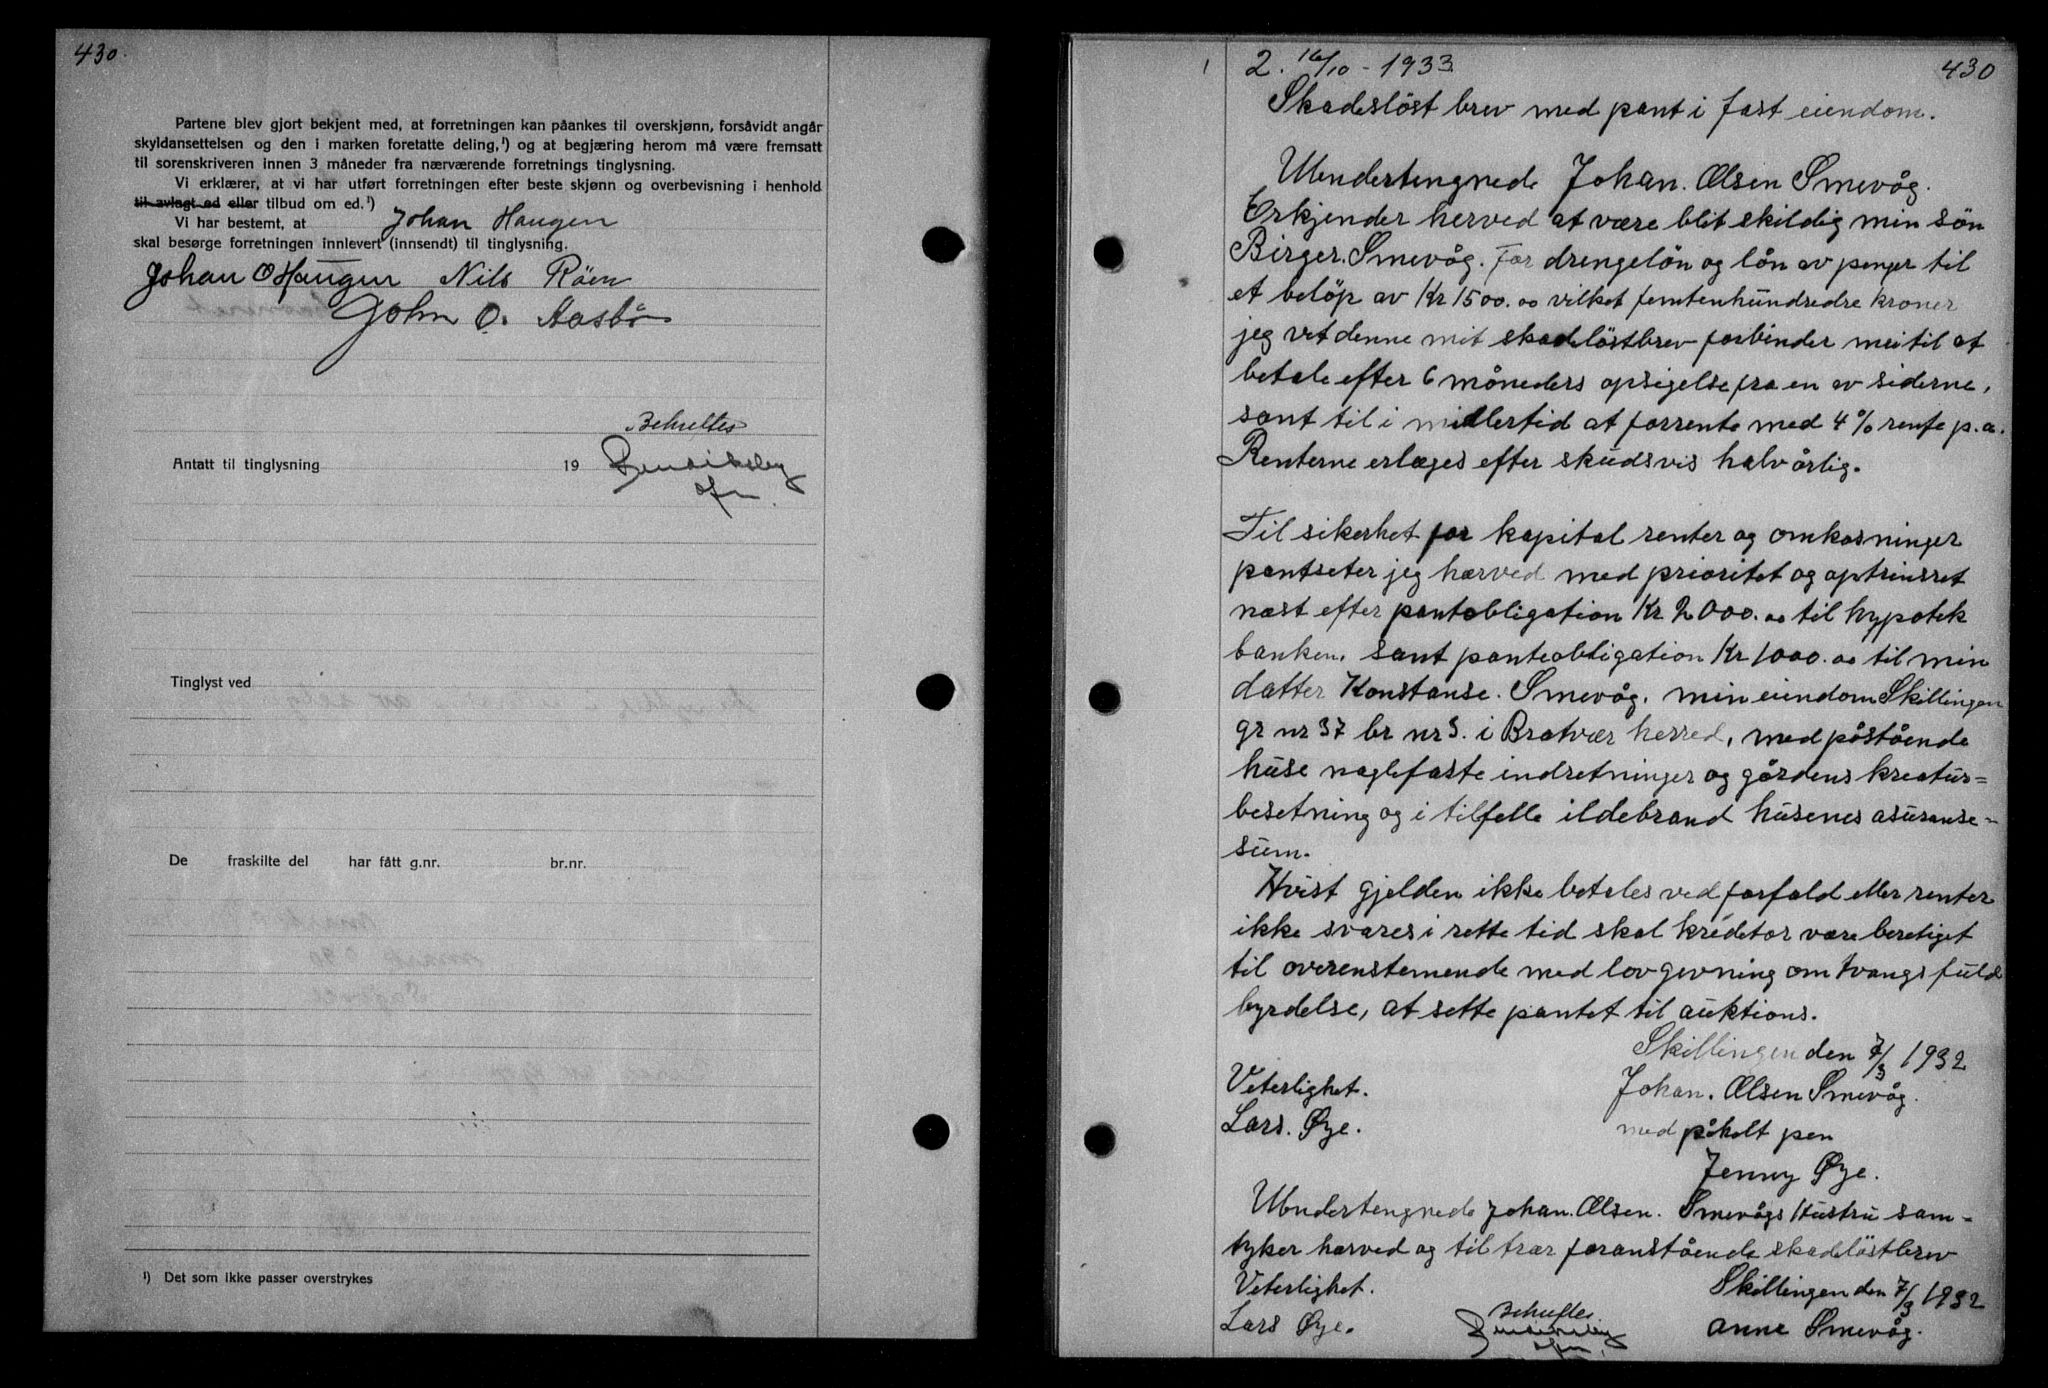 430.
Partene blev gjort bekjent med, at forretningen kan påankes til overskjønn, forsåvidt angår
skyldansettelsen og den i marken foretatte deling,¹) og at begjæring herom må være fremsatt
til sorenskriveren innen 3 måneder fra nærværende forretnings tinglysning.
Vi erklærer, at vi har utført forretningen efter beste skjønn og overbevisning i henhold
til avlagt ed eller tilbud om ed.¹)
Vi har bestemt, at Johan Haugen
skal besørge forretningen innlevert (innsendt) til tinglysning.
Johan O Haugen Nils Röen
John O. Aasbö
Antatt til tinglysning 19
Tinglyst ved
De fraskilte del har fått g.nr. br.nr.
¹) Det som ikke passer overstrykes
2. 16/10 - 1933 430
Skadeslöst brev med pant i fast eiendom.
Undertengnede Johan. Olsen Smevåg.
Erkjender herved at være blit skildig min sön
Birger. Smevåg. for drengelön og lån av penger til
et belöp av Kr 1500.00 vilket femtenhundredre kroner
jeg vet denne mit skadelöstbrev forbinder mei til at
betale efter 6 måneders opsigelse fra en av siderne,
samt til i midlertid at forrente med 4% rente p.a.
Renterne erlæges efter skudsvis halvårlig.
Til sikerhet for kapital renter og omkosninger
pantseter jeg hærved med prioritet og optrinsret
næst efter pantobligation Kr 2000.00 til hypotek
banken. samt panteobligation Kr 1000.00 til min
datter Konstanse. Smevåg. min eiendom Skillingen
gr nr 37 br nr 3. i Bratvær herred, med påstående
huse naglefaste indretninger og gårdens kreatur=
besetning og i tilfelle ildebrand husenes asuranse=
sum.
Hvist gjelden ikke betales ved forfald eller renter
ikke svares i rette tid skal kreditor være beretiget
til overenstemende med lovgevning om tvangsfuld
byrdelse, at sette pantet til auktions.
Skillingen den 7/3 1932
Veterlighet. Johan. Olsen Smevåg.
Lars. Øye. med påholt pen
Jenny Øye.
Undertengnede Johan. Olsen. Smevågs Hustru sam=
tyker hærved og til trær foranstående skadelöstbrev
Veterlighet. Skillingen den 7/3 1932
Lars Øye. Anne Smevåg.